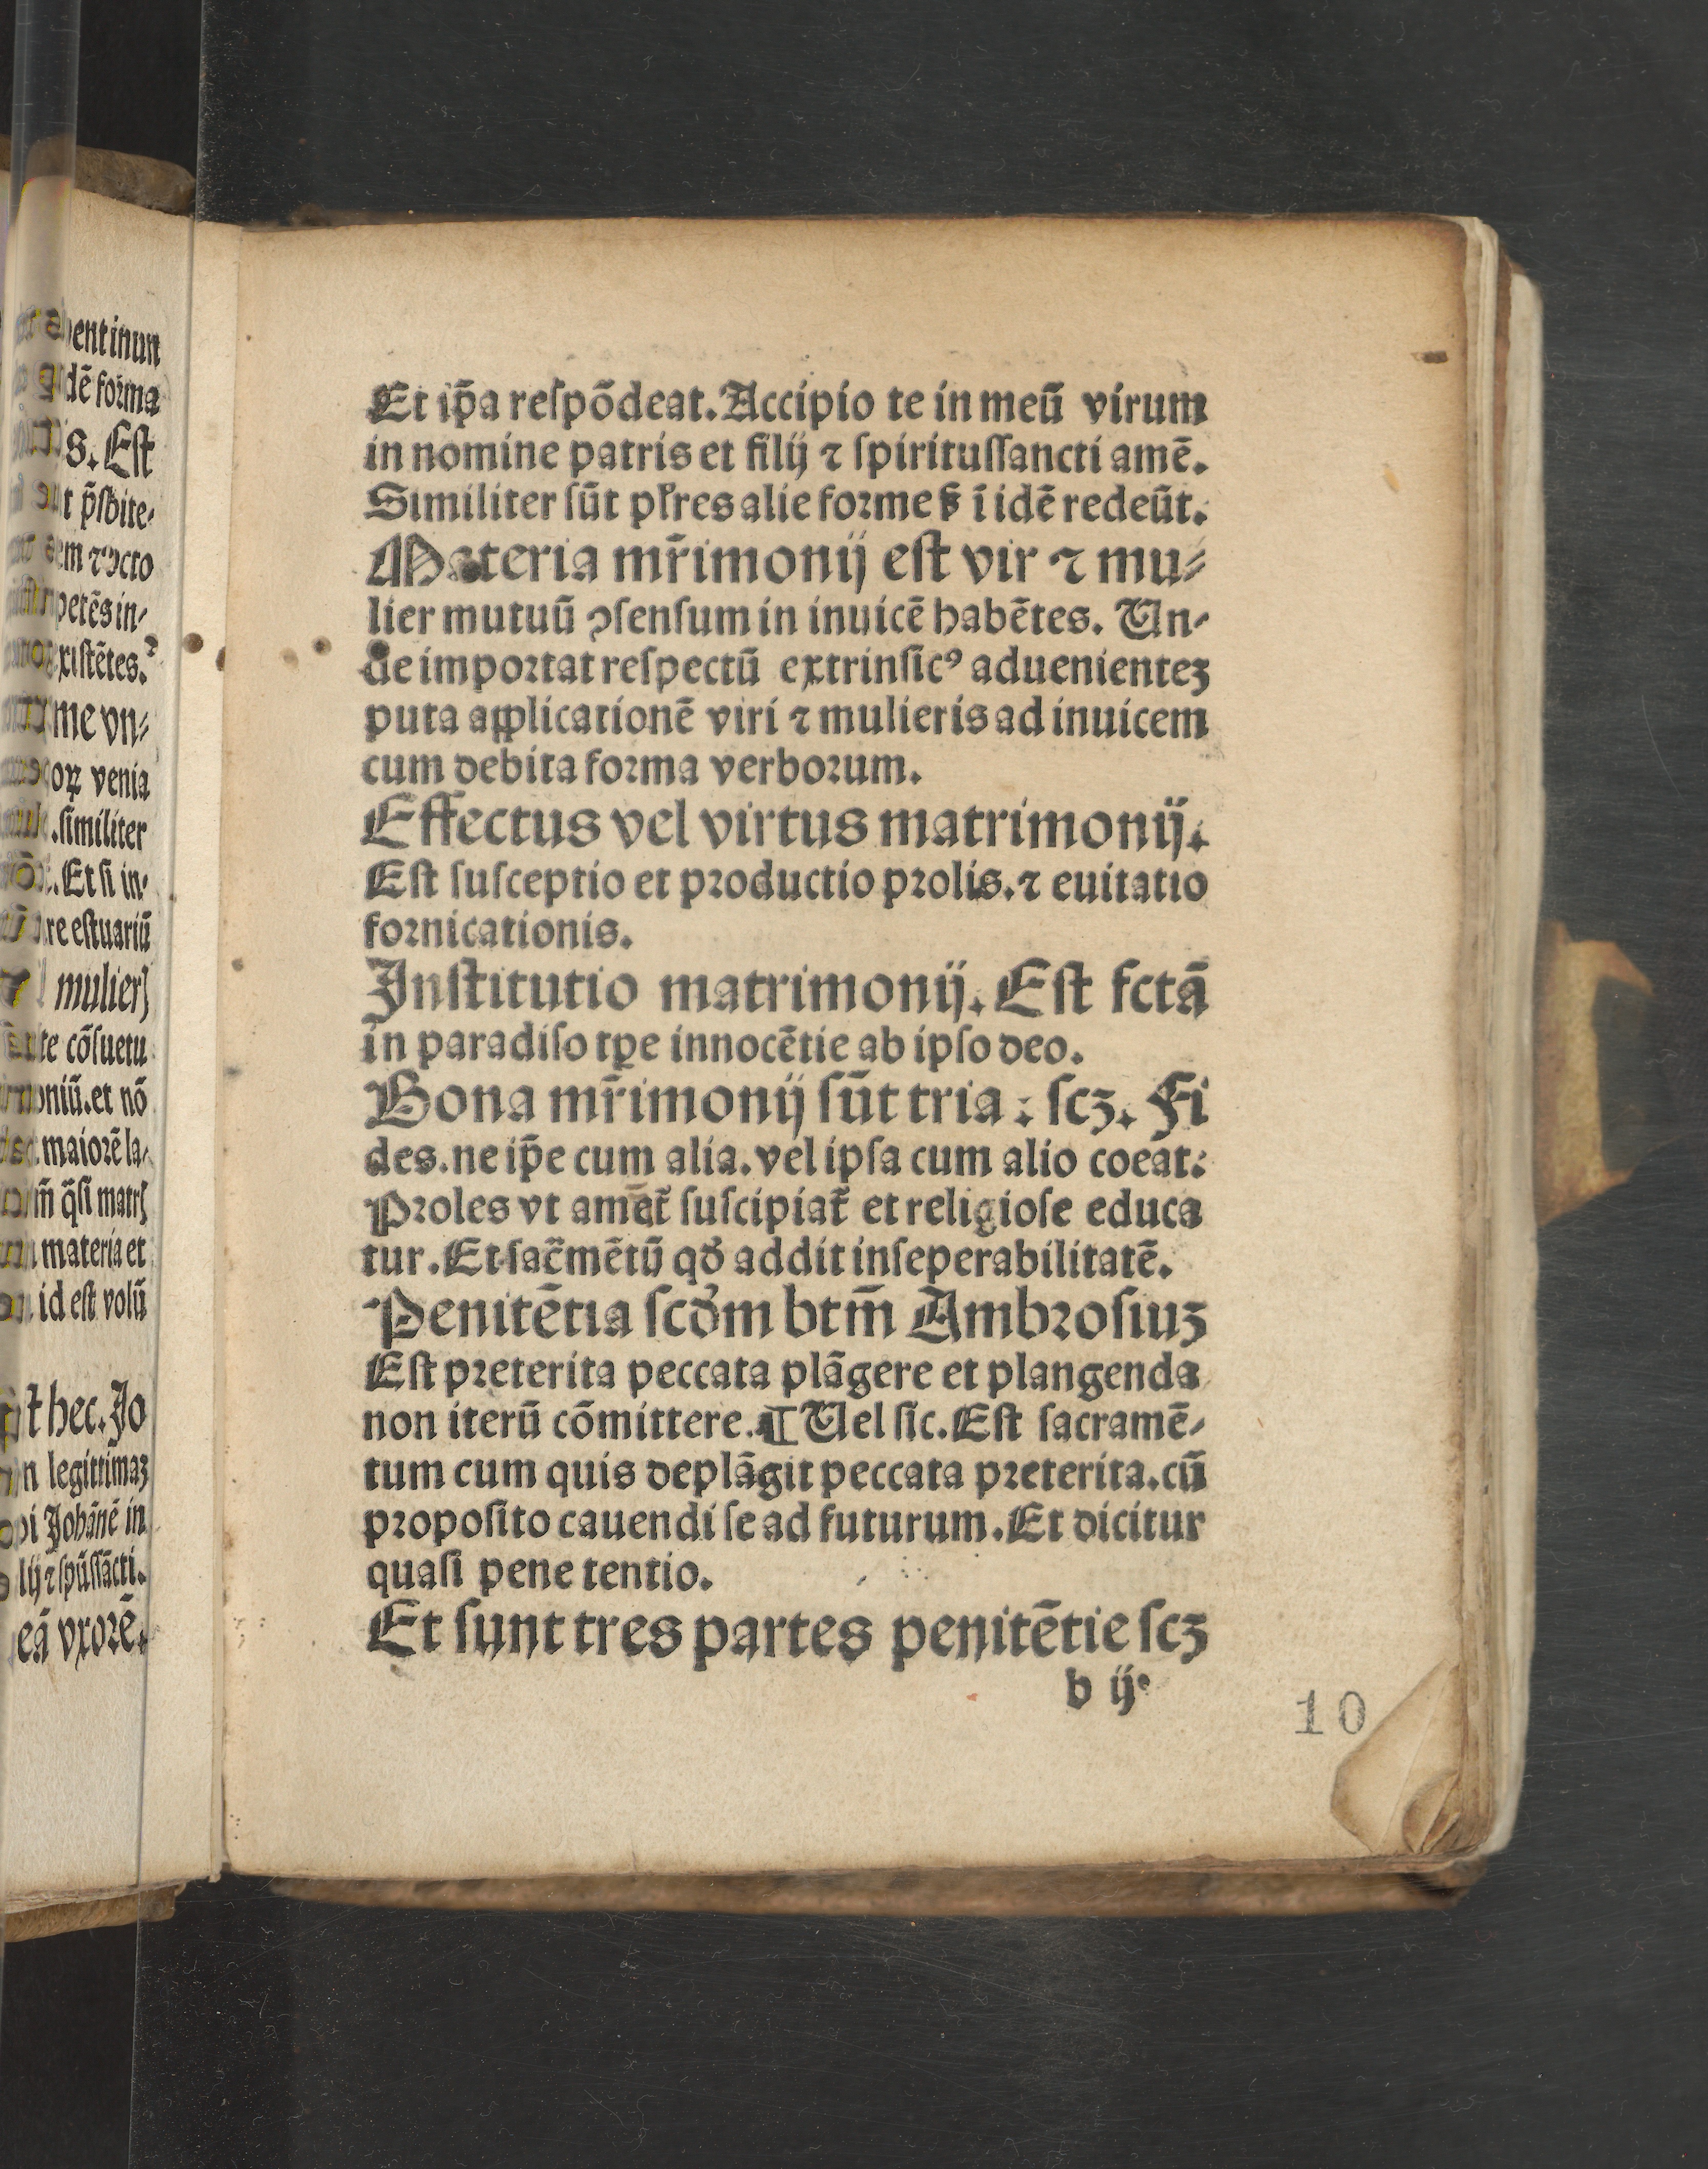 entinun
dē foꝛma
s. Eſt
t p̄ſbite⸗
em ⁊ ꝯcto
petēs in⸗
xiſtētes.
me vn⸗
oꝝ venia
.ſimiliter
.Et ſi in⸗
re eſtuariū
mulierꝭ
te cōſuetu
oniū.et nō
maioꝛē la⸗
m̄ q̄ſi matrꝭ
materia et
id eſt volū
t hec. Jo
n legittimaꝫ
pi Johānē in
lij ⁊ ſpūſſācti.
eā vxoꝛē.
Et ip̄a reſpōdeat. Accipio te in meū virum
in nomine patris et filij ⁊ ſpirituſſancti amē.
Similiter ſūt pl̄res alie foꝛme ſꝫ ī idē redeūt.
Materia mr̄imonij eſt vir ⁊ mu⸗
lier mutuū ꝯſenſum in inuicē habētes. Vn⸗
de impoꝛtat reſpectū extrinſicꝰ aduenienteꝫ
puta applicationē viri ⁊ mulieris ad inuicem
cum debita foꝛma verboꝛum.
Effectus vel virtus matrimonij.
Eſt ſuſceptio et pꝛoductio pꝛolis. ⁊ euitatio
foꝛnicationis.
Inſtitutio matrimonij. Eſt fctā
in paradiſo tꝑe innocētie ab ipſo deo.
Bona mr̄imonij ſūt tria : ſcꝫ. Fi
des. ne ip̄e cum alia. vel ipſa cum alio coeat.
Pꝛoles vt amāt᷑ ſuſcipiat᷑ et religioſe educa
tur. Et ſac̄mētū qd̓ addit inſeperabilitatē.
Penitētia ſcd̓m btm̄ Ambꝛoſiuꝫ
Eſt pꝛeterita peccata plāgere et plangenda
non iterū cōmittere. ¶ Vel ſic. Eſt ſacramē⸗
tum cum quis deplāgit peccata pꝛeterita. cū
pꝛopoſito cauendi ſe ad futurum. Et dicitur
quaſi pene tentio.
Et ſunt tres partes penitētie ſcꝫ
b ij
10